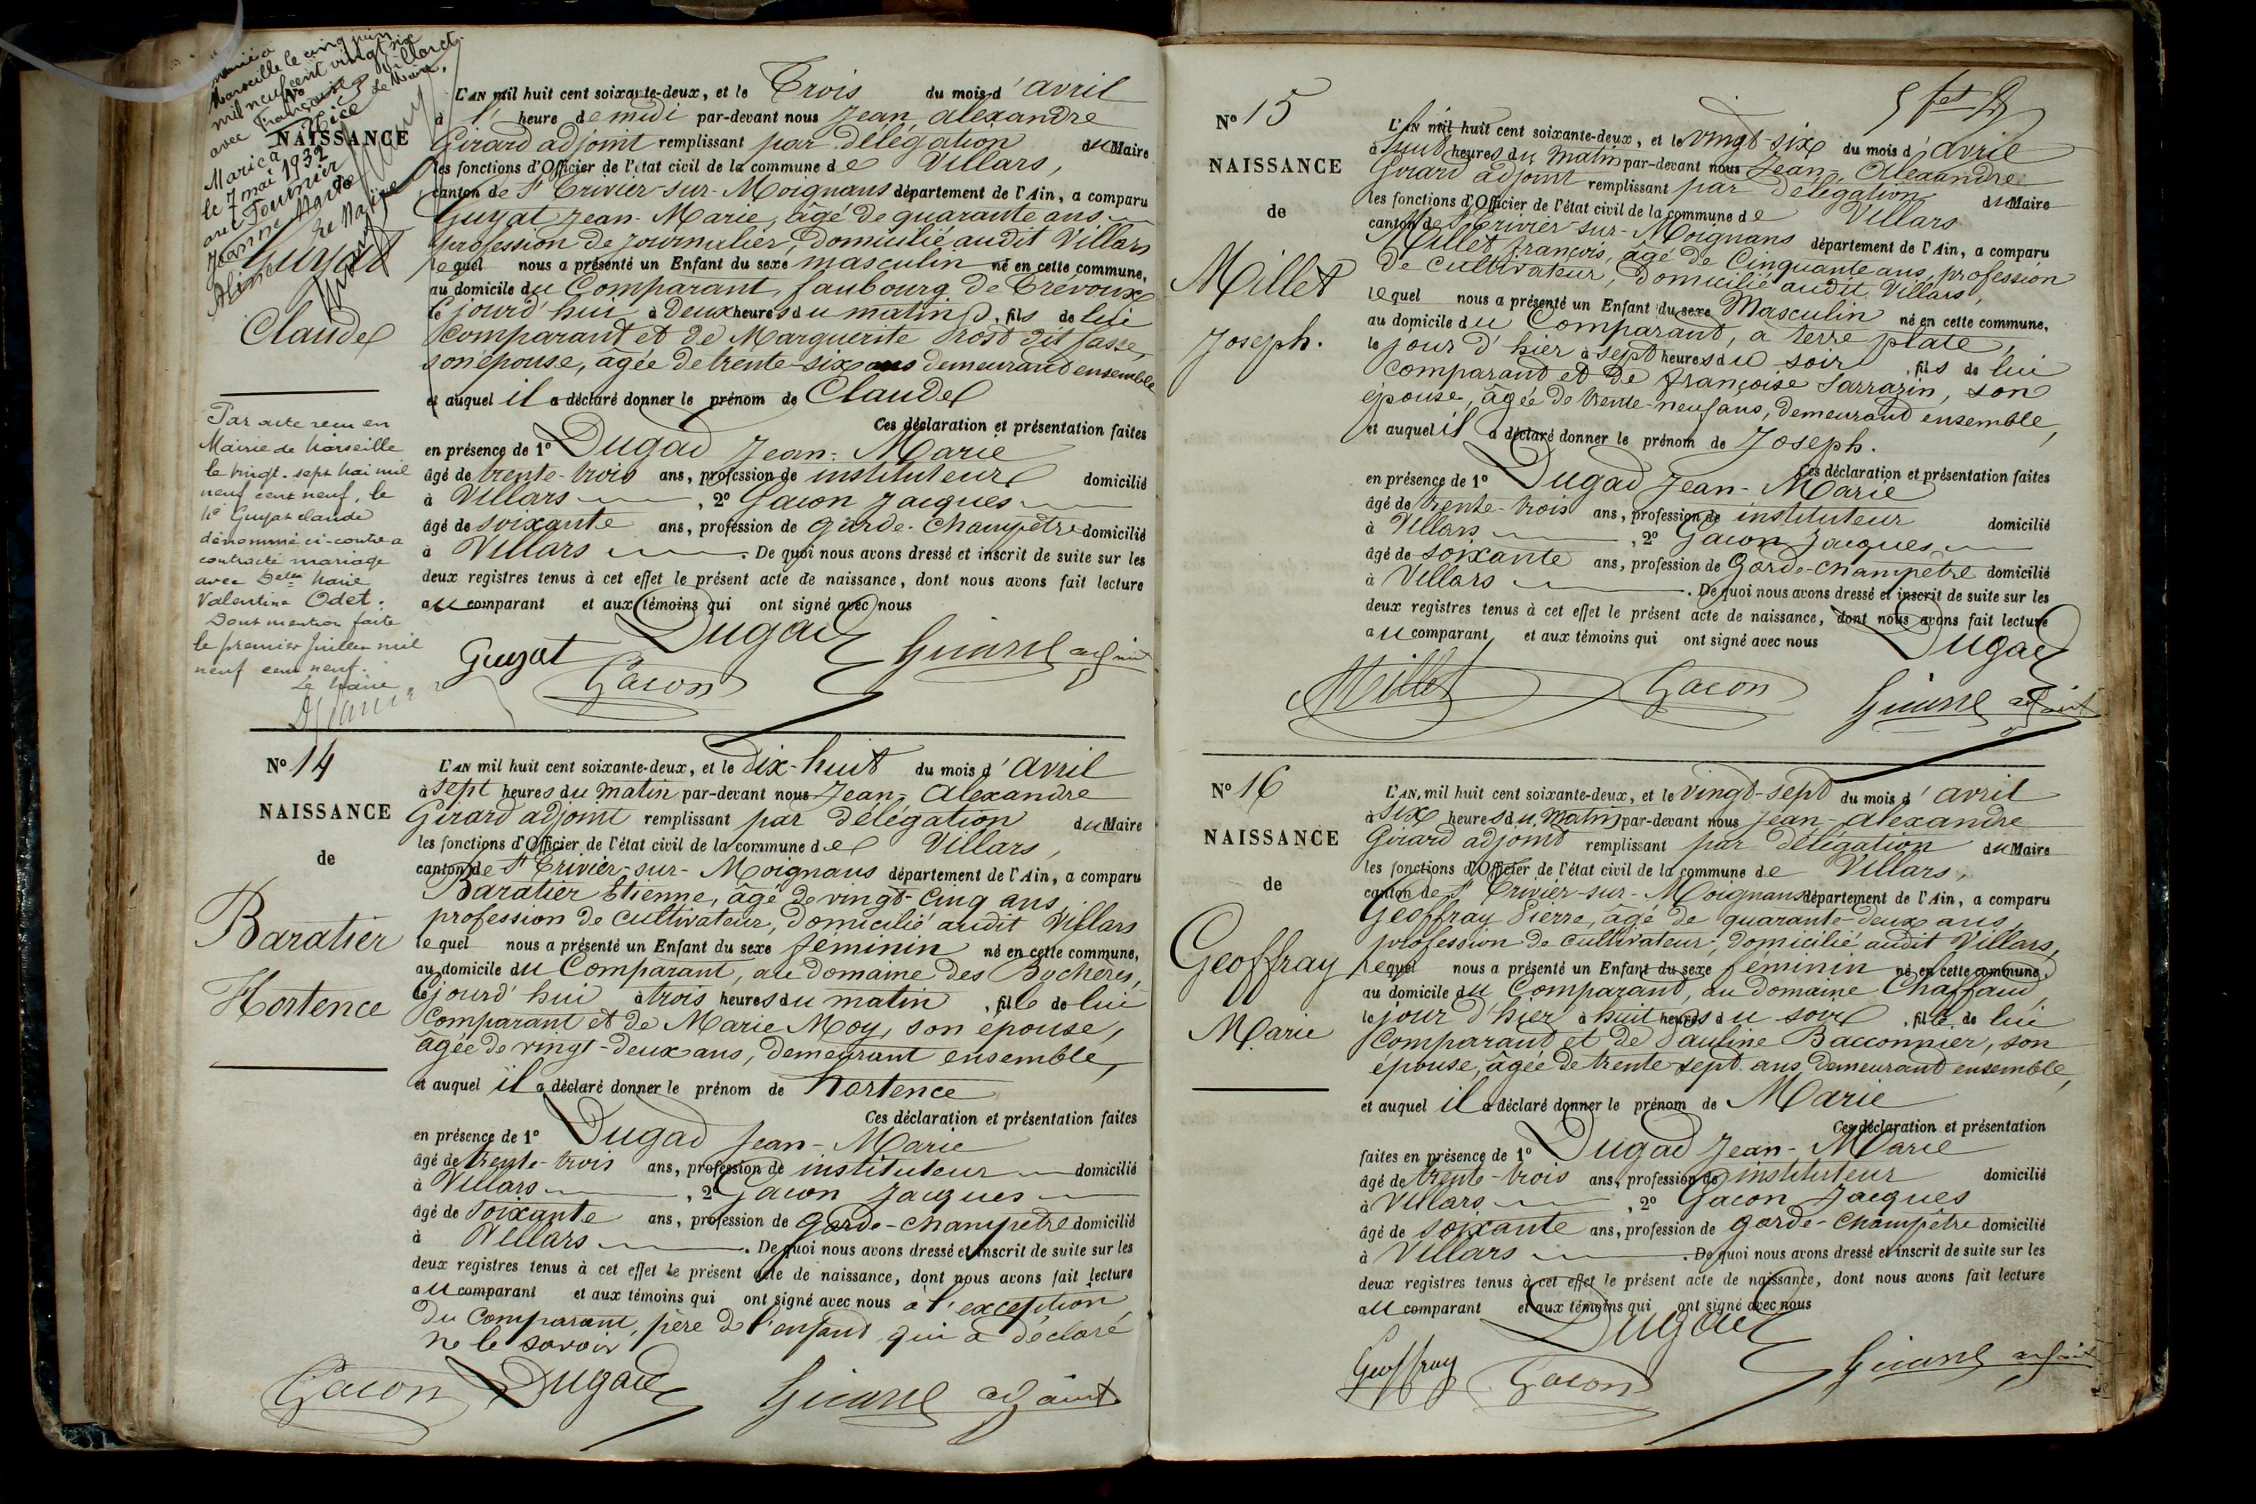 Marié à
Marseille le cinq juin
mil neuf cent vingt six
avec Françoise Villaret.
Le Maire,
NAISSANCE
Marié à Nice
le 7 mai 1932
avec Tournier
Jeanne Marie
Aline Le Maire
Guyat
Claude
Par acte reçu en
Mairie de Marseille
le vingt-sept Mai mil
neuf cent neuf, le
Guyat Claude
dénommé ci-contre a
contracté mariage
avec Delle Marie
Valentine Odet.
Dont mention faite
le premier juillet mil
neuf cent neuf.
Le Maire
L'AN mil huit cent soixante-deux, et le Trois du mois d'avril
à 1 heure de midi par-devant nous Jean Alexandre
Girard adjoint remplissant par délégation du Maire
les fonctions d'Officier de l'état civil de la commune de Villars,
canton de St Trivier-sur-Moignans département de l'Ain, a comparu
Guyat Jean-Marie, âgé de quarante ans
profession de journalier, domicilié audit Villars
lequel nous a présenté un Enfant du sexe masculin né en cette commune,
au domicile du Comparant, faubourg de Trévoux
le jourd'hui à Deux heures du matin, fils de lui
comparant et de Marguerite Prost dit Jasse,
son épouse, âgée de trente-six ans demeurant ensemble
et auquel il a déclaré donner le prénom de Claude
Ces déclaration et présentation faites
en présence de 1° Dugad Jean-Marie
âgé de trente-trois ans, profession de instituteur domicilié
à Villars, 2° Gacon Jacques
âgé de soixante ans, profession de garde-champêtre domicilié
à Villars. De quoi nous avons dressé et inscrit de suite sur les
deux registres tenus à cet effet le présent acte de naissance, dont nous avons fait lecture
au comparant et aux témoins qui ont signé avec nous
Guyat Dugad Girard adjoint
Gacon
N° 14
NAISSANCE
de
Baratier
Hortence
L'AN mil huit cent soixante-deux, et le dix-huit du mois d'avril
à sept heures du matin par-devant nous Jean-Alexandre
Girard adjoint remplissant par délégation du Maire
les fonctions d'Officier de l'état civil de la commune de Villars,
canton de St Trivier-sur-Moignans département de l'Ain, a comparu
Baratier Etienne, âgé de vingt-cinq ans
profession de cultivateur, domicilié audit Villars
lequel nous a présenté un Enfant du sexe féminin né en cette commune,
au domicile du Comparant, au domaine des Bocheres,
le jourd'hui à trois heures du matin, fille de lui
comparant et de Marie Moy, son épouse,
âgée de vingt-deux ans, demeurant ensemble,
et auquel il a déclaré donner le prénom de hortence
Ces déclaration et présentation faites
en présence de 1° Dugad Jean-Marie
âgé de trente-trois ans, profession de instituteur domicilié
à Villars, 2° Gacon Jacques
âgé de soixante ans, profession de garde-champêtre domicilié
à Villars. De quoi nous avons dressé et inscrit de suite sur les
deux registres tenus à cet effet le présent acte de naissance, dont nous avons fait lecture
au comparant et aux témoins qui ont signé avec nous à l'exception
du comparant, père de l'enfant qui a déclaré
ne le savoir
Gacon Dugad Girard adjoint
N° 15
NAISSANCE
de
Millet
Joseph.
L'AN mil huit cent soixante-deux, et le vingt-six du mois d'avril
à huit heures du matin par-devant nous Jean, Alexandre
Girard adjoint remplissant par délégation du Maire
les fonctions d'Officier de l'état civil de la commune de Villars
canton de St Trivier-sur-Moignans département de l'Ain, a comparu
Millet françois, âgé de Cinquante ans, profession
de cultivateur, domicilié audit Villars,
lequel nous a présenté un Enfant du sexe Masculin né en cette commune,
au domicile du Comparant, à terre plate,
le jour d'hier à sept heures du soir, fils de lui
comparant et de françoise Sarrazin, son
épouse, âgée de trente-neuf ans, demeurant ensemble,
et auquel il a déclaré donner le prénom de Joseph.
Ces déclaration et présentation faites
en présence de 1° Dugad Jean-Marie
âgé de trente-trois ans, profession de instituteur domicilié
à Villars, 2° Gacon Jacques
âgé de soixante ans, profession de garde-champêtre domicilié
à Villars. De quoi nous avons dressé et inscrit de suite sur les
deux registres tenus à cet effet le présent acte de naissance, dont nous avons fait lecture
au comparant et aux témoins qui ont signé avec nous
Dugad
Millet Gacon Girard adjoint
N° 16
NAISSANCE
de
Geoffray
Marie
L'AN mil huit cent soixante-deux, et le vingt-sept du mois d'avril
à six heures du matin par-devant nous Jean-Alexandre
Girard adjoint remplissant par délégation du Maire
les fonctions d'Officier de l'état civil de la commune de Villars,
canton de St Trivier-sur-Moignans département de l'Ain, a comparu
Geoffray Pierre, âgé de quarante-deux ans,
profession de cultivateur, domicilié audit Villars,
lequel nous a présenté un Enfant du sexe féminin né en cette commune,
au domicile du Comparant, au domaine Chaffaud,
le jour d'hier à huit heures du soir, fille de lui
comparant et de Pauline Bacconnier, son
épouse, âgée de trente-sept ans, demeurant ensemble,
et auquel il a déclaré donner le prénom de Marie
Ces déclaration et présentation
faites en présence de 1° Dugad Jean-Marie
âgé de trente-trois ans, profession de instituteur domicilié
à Villars, 2° Gacon Jacques
âgé de soixante ans, profession de garde-champêtre domicilié
à Villars. De quoi nous avons dressé et inscrit de suite sur les
deux registres tenus à cet effet le présent acte de naissance, dont nous avons fait lecture
au comparant et aux témoins qui ont signé avec nous
Dugad
Geoffray Gacon Girard adjoint